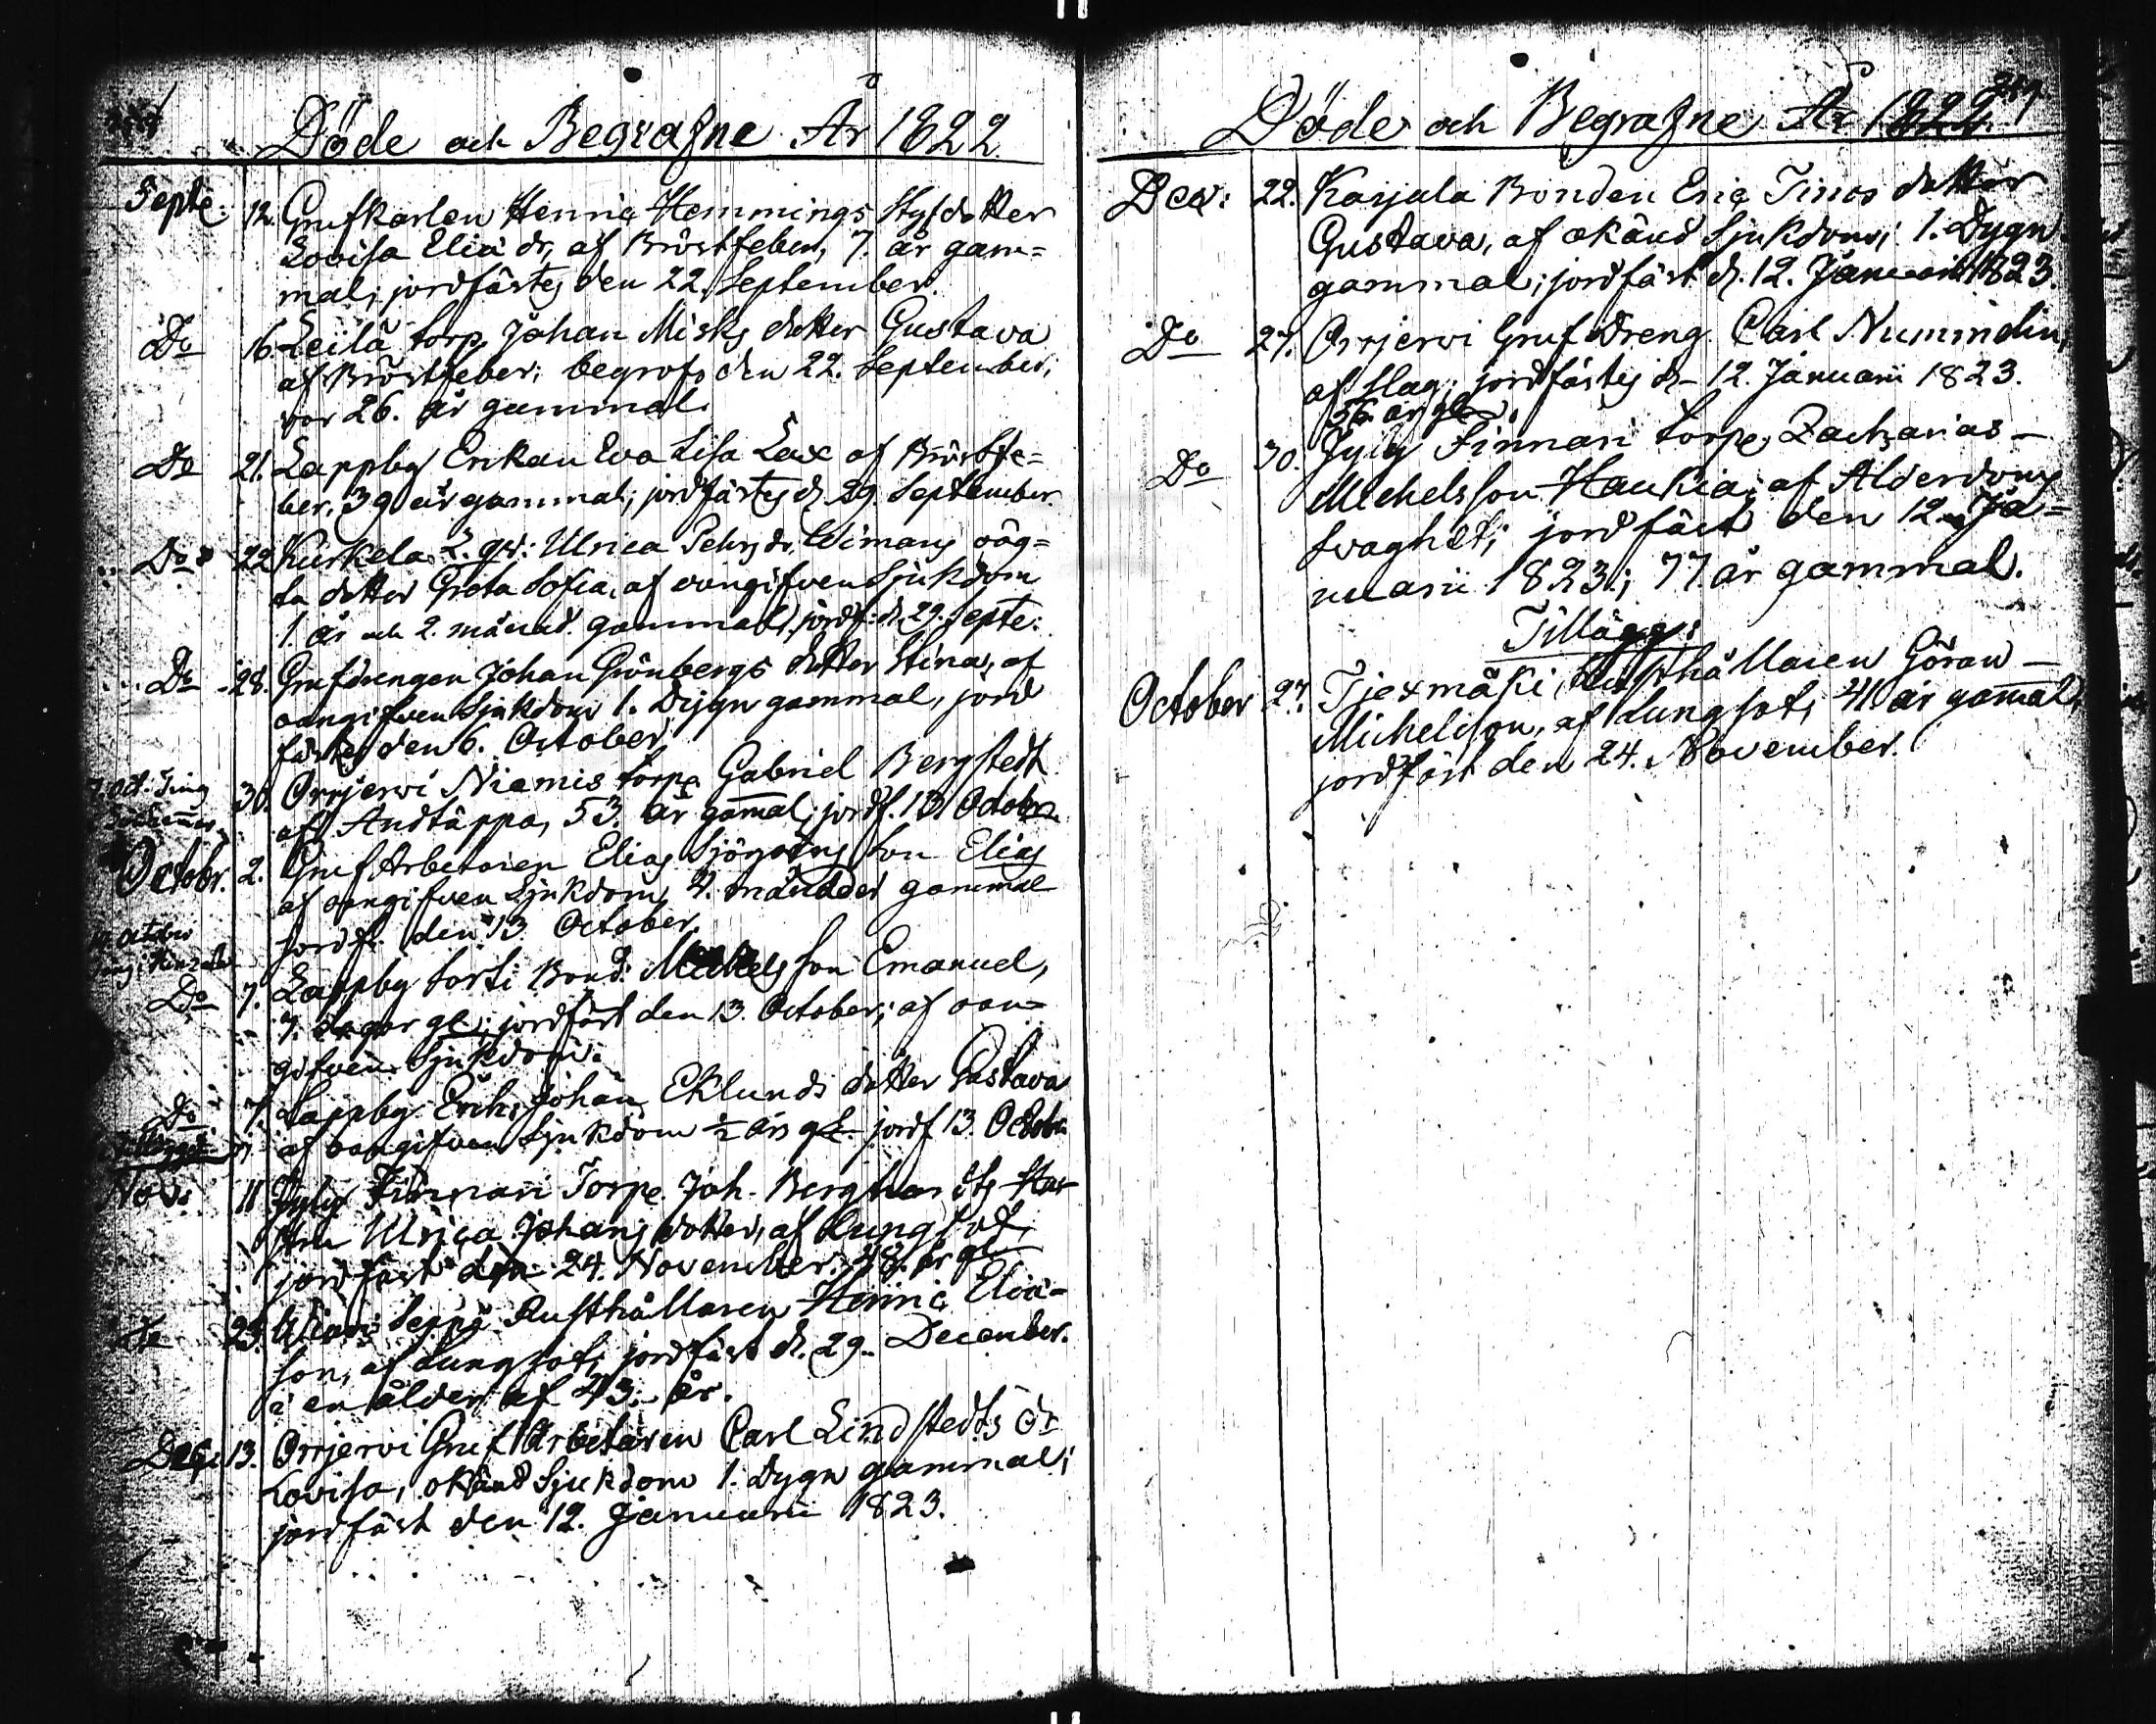 Döde och Begrafne År 1822
Septe. 12. Grufkarlen Henric Hemmings Styfdotter
Lovisa Elia dr, af Bröstfeber, 7. år gam=
mal; jordfästes den 22. September.
Do 16. Leilä torp. Johan Misks dotter Gustava
af Bröstfeber; begrofs den 22. September;
var 26. år gammal.
Do 21. Lappby Enkan Eva Lisa Lax af Bröstfe=
ber, 39 år gammal; jordfästes d. 29. September.
Do 22. Kurkela Ulrica Pehrs dr. Wimans oäg=
ta dotter Greta Sofia, af oangifven Sjukdom
1. år och 2. månad. gammal, jordf: d. 29. Septe:
Do 28. Grufdrengen Johan Grönbergs dotter Stina, af
oangifven Sjukdom 1. Dygn gammal, jord
fästes den 6. October
30. Orrjerwi Niemis torpe Gabriel Bergstedt
af Andtäppa, 53. år gamal; jordf. 13 October
Octobr. 2. Gruf Arbetaren Elias Sjögrens Son Elias
af oangifven Sjukdom, 4. månader gammal
jordf. den 13 October.
Do 7. Lappby Bond: Michels Son Emanuel,
7. dagar gl; jordfäst den 13. October; af oan=
gifven Sjukdom.
Do 7. Lappby Johan Eklunds dotter Gustava
af oangifven Sjukdom ½ års gl. jordf 13. Octobr
Nov: 11 Jyly Finnari Torpe. Joh. Bergmans
Ulrica Johans dotter, af Lungsot,
jordfäst den 24. November. 48. år gl
Do 23. Seppä Rusthållaren Henric Elia=
son, af Lungsot; jordfäst d. 29. December.
i en ålder af 43. år.
Dec: 13. Orrjerwi Gruf Arbetaren Carl Lindstedts dr
Lovisa, okänd Sjukdom 1. Dygn gammal;
jordfäst den 12. Januarii 1823.
Döde och Begrafne År 1822
Dec: 22. Karjala Bonden Eric Tinos dotter
Gustava, af okänd Sjukdom; 1. Dygn
gammal; jordfäst d. 12. Januarii 1823.
Do 27. Orrjerwi Grufdreng Carl Nummelin,
af Slag; jordfästes d. 12. Januarii 1823.
56 år gl.
Do 30. Jyly Finnari torpe. Zacharias
Michelsson Haukia; af Alderdoms
svaghet; jordfäst den 12. Ja=
nuarii 1823; 77. år gammal.
Tillägg:
October 27. Tjexmäki, Rusthållaren Göran
Michelsson, af Lungsot; 41 år gamal,
jordfäst den 24. November.